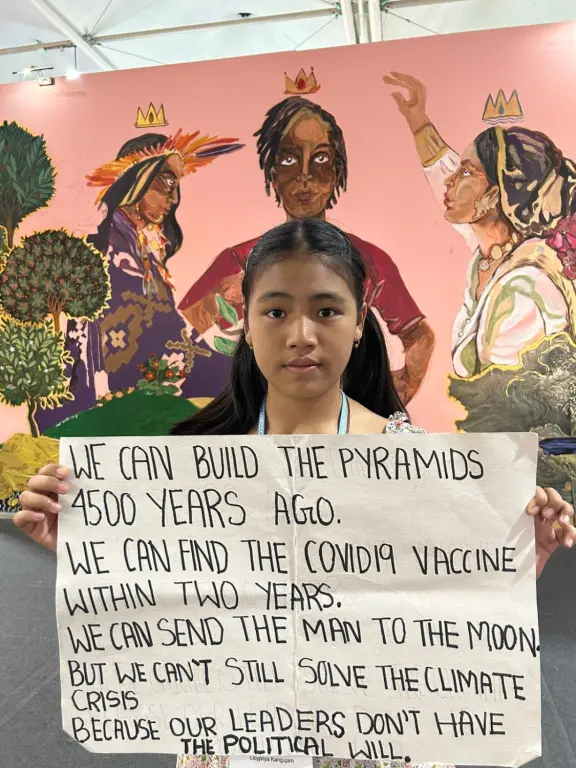 WE CAN BUILD THE PYRAMIDS
4500 YEARS AGO.
WE CAN FIND THE COVID19 VACCINE
WITHIN TWO YEARS.
WE CAN SEND THE MAN TO THE MOON.
BUT WE CAN'T STILL SOLVE THE CLIMATE
CRISIS
BECAUSE OUR LEADERS DON'T HAVE
THE POLITICAL WILL.
Licypriya Kangujam